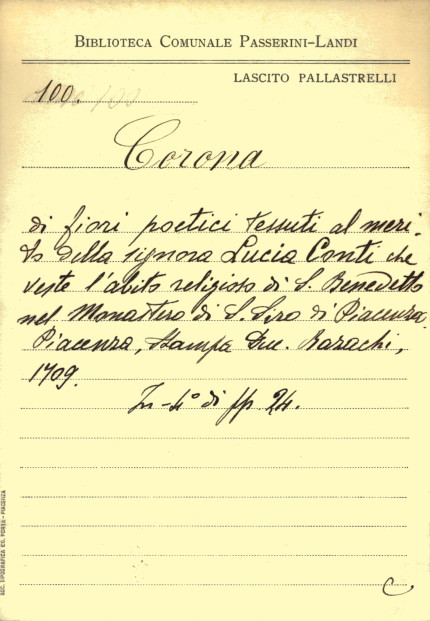 BIBLIOTECA COMUNALE PASSERINI-LANDI
LASCITO PALLASTRELLI
100.
Corona
di fiori poetici tessuti al meri-
to della signora Lucia Conti che
veste l'abito religioso di S. Benedetto
nel Monastero di S. Siro di Piacenza.
Piacenza, Stampa Duc. Bazachi,
1709.
In-4° di pp. 24.
C
SOC. TIPOGRAFICA ED. PORTA - PIACENZA